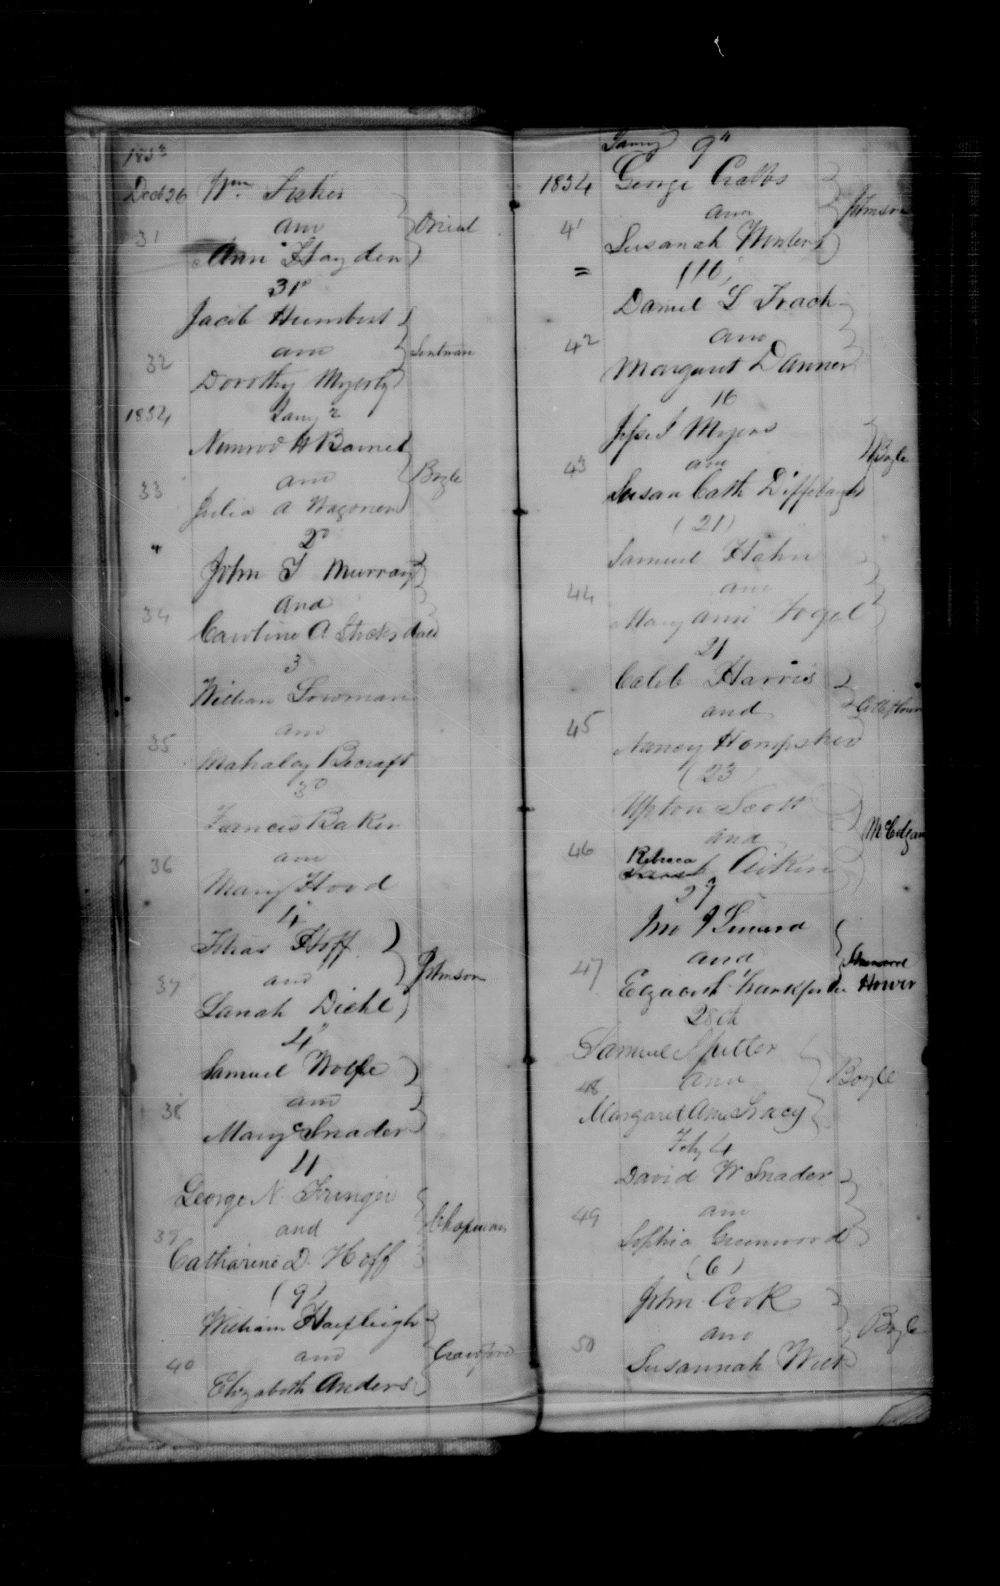 1853
Dec 26 Wm Fisher
and
31
Ann Hayden
31
Jacob Humbert
and
32
Dorothy Myerly
1854 Jany 2
Nimrod H Barnes
and Boyle
33
Julia A Wagoner
" 2
John T Murray
and
34
Caroline A Stocksdale
3
William Lowman
and
35
Mahaley Becraft
30
Frances Baker
and
36
Mary Hood
4
Hoff
and Johnson
37
Sarah Diehl
4
Samuel Wolfe
and
38
Mary C Snader
4
George N. Fringer
and Chapman
39
Catharine D. Hoff
(9)
William Haifleigh
and Crawford
40
Elizabeth Anders
Jany 9"
1854 George Crabbs
and Johnson
41
Susanah
= (10)
Daniel L Trach
and
42
Margaret Danner
16
Myers
and Boyle
43
Susan Cath Diffebaugh
(21)
Samuel Hahn
and
44
Mary Ann Fogel
21
Caleb Harris
and
45
Nancy
(23)
Upton Scott
and
46
Rebeca
Sarah Aitken
27
Jno
and
47
28th
Samuel
48 and Boyle
Margaret Ann Tracy
Feby 4
David W Snader
and
49
Sophia Greenwood
(6)
John Cook
and Boyle
50
Susannah